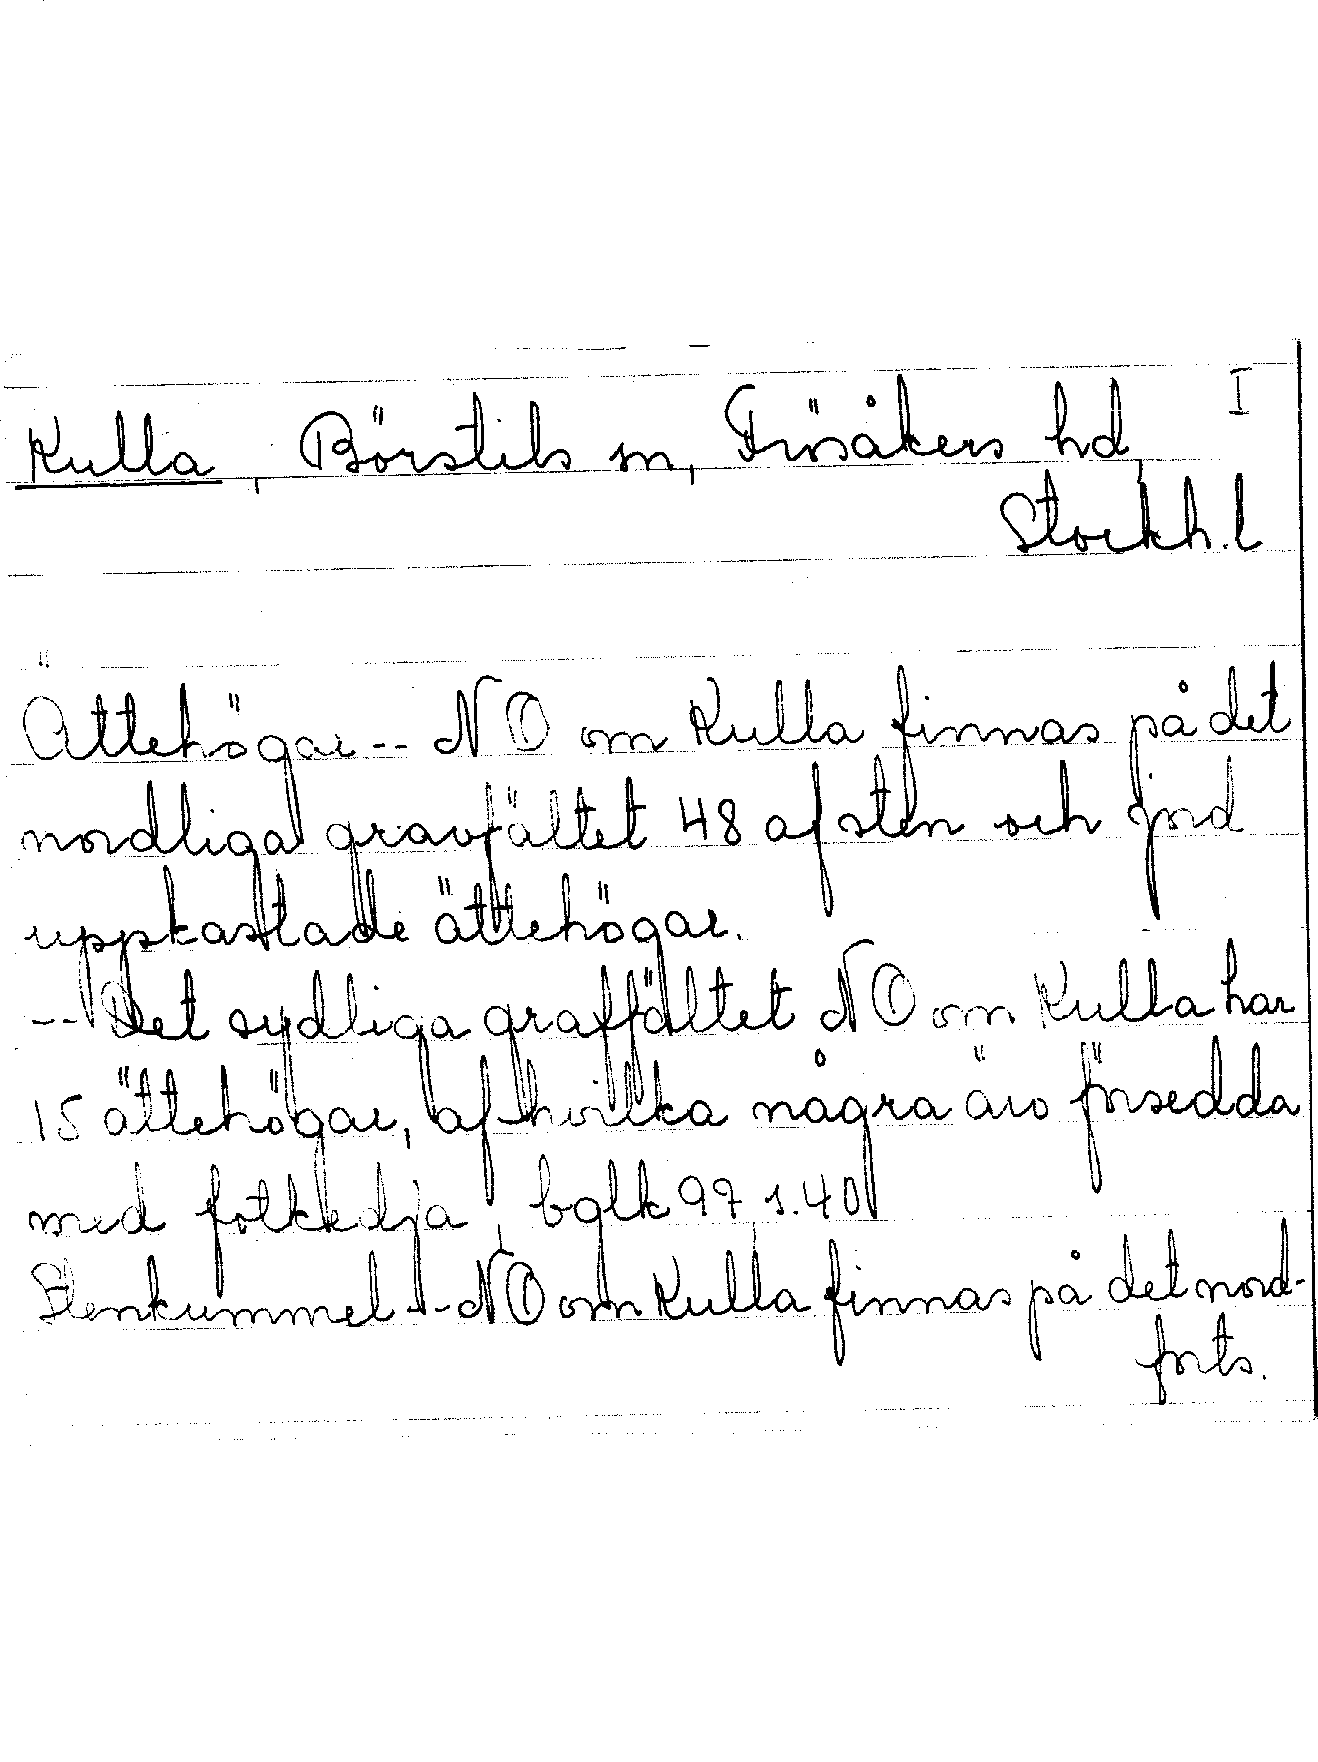 I
Kulla, Börstils sn, Frösåkers hd,
Stockh. l
Ättehögar -- NO om Kulla finnas på det
nordliga gravfältet 48 af sten och jord
uppkastade ättehögar.
-- Det sydliga graffältet NO om Kulla har
15 ättehögar, af hvilka några äro försedda
med fotkedja, bglk 97 s. 40
Stenkummel -- NO om Kulla finnas på det nord-
forts.